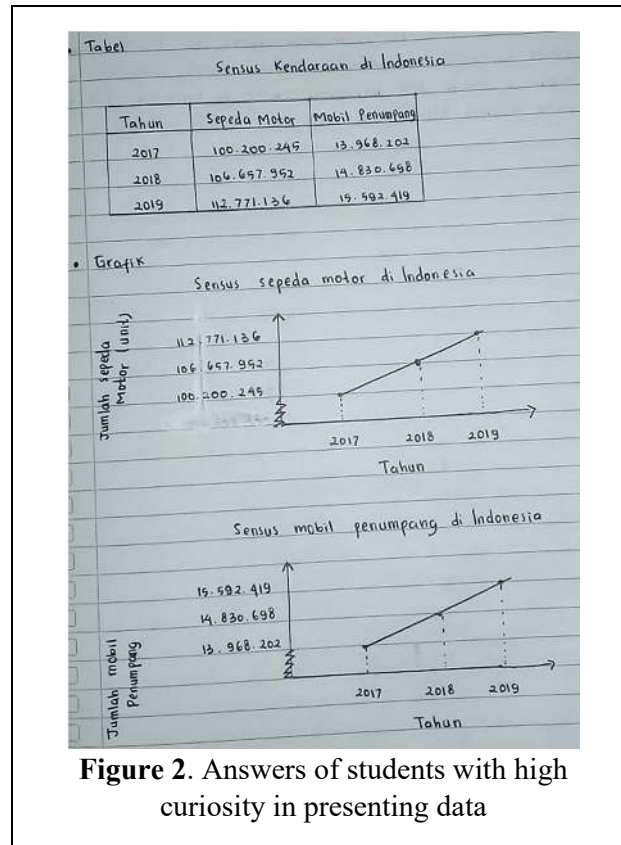 • Tabel
Sensus Kendaraan di Indonesia
Tahun Sepeda Motor Mobil Penumpang
2017 100.200.245 13.968.202
2018 106.657.952 14.830.698
2019 112.771.136 15.592.419
• Grafik
Sensus sepeda motor di Indonesia
Jumlah sepeda
Motor (unit)
112.771.136
106.657.952
100.200.245
2017 2018 2019
Tahun
Sensus mobil penumpang di Indonesia
Jumlah mobil
Penumpang
15.592.419
14.830.698
13.968.202
2017 2018 2019
Tahun
Figure 2. Answers of students with high
curiosity in presenting data